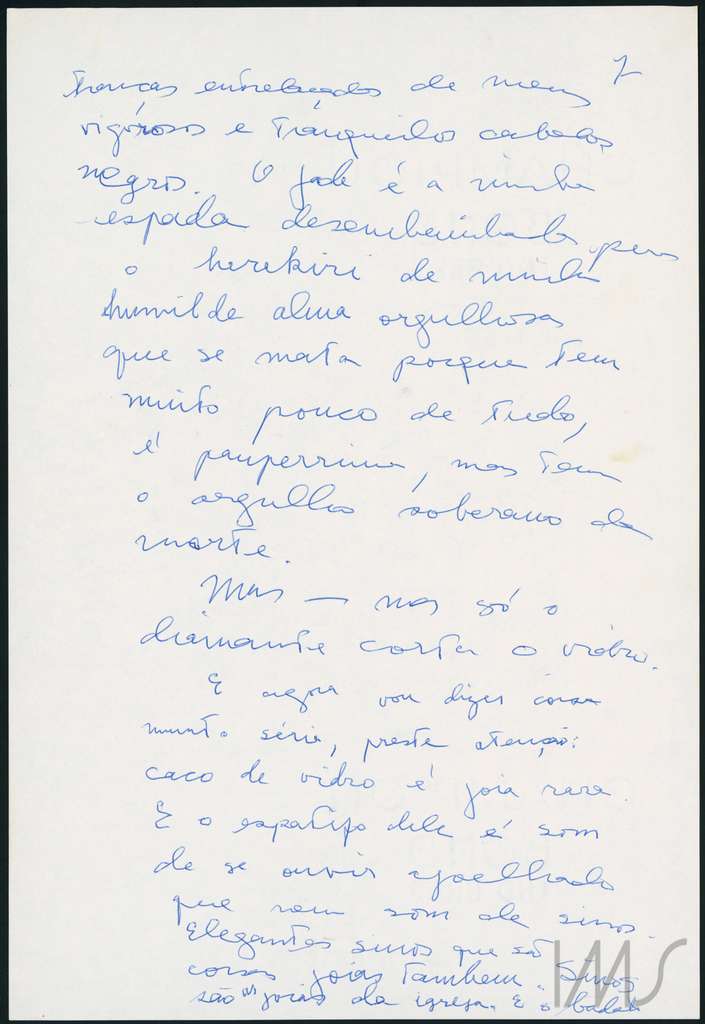 7
tranças entrelaçadas de meus
vigorosos e tranquilos cabelos
negros. O jade é a minha
espada desembainhada para
o herekiri de minha
humilde alma orgulhosa
que se mata porque tem
muito pouco de tudo,
é paupérrima, mas tem
o orgulho soberano da
morte.
Mas — mas só o
diamante corta o vidro.
E agora vou dizer coisa
muito séria, preste atenção:
caco de vidro é joia rara.
E o espatifo dele é som
de se ouvir ajoelhado
que nem som de sinos.
Elegantes sinos que são
coisas joias tambem. Sinos
são as joias da igreja. E o badalo
IMS